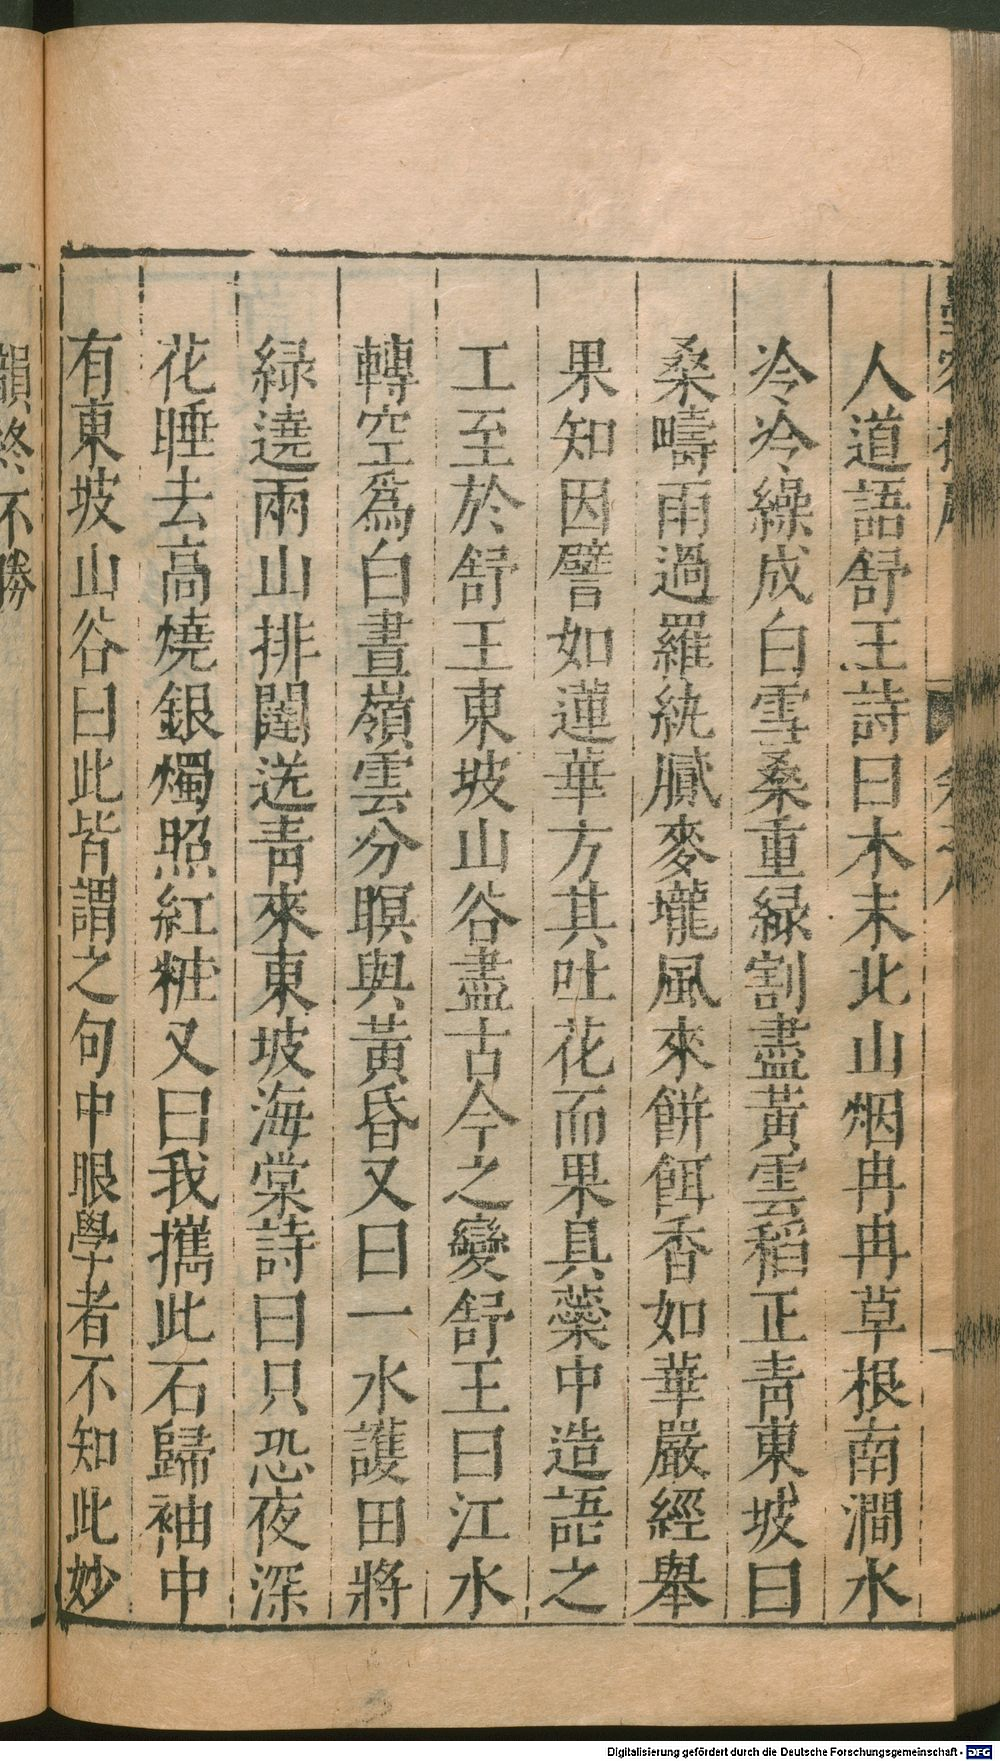 人道語舒王詩曰木末北山烟冉冉草根南澗水
冷冷繰成白雪桑重緑割盡黃雲稻正青東坡曰
桑疇雨過羅紈膩麥壠風來餅餌香如華嚴經舉
果知因譬如蓮華方其吐花而果具蘂中造語之
工至於舒王東坡山谷盡古今之變舒王曰江水
轉空爲白晝嶺雲分暝與黃昏又曰一水護田將
緑遶兩山排闥送青來東坡海棠詩曰只恐夜深
花睡去高燒銀燭照紅粧又曰我攜此石歸袖中
有東坡山谷曰此皆謂之句中眼學者不知此妙
韻終不勝
Digitalisierung gefördert durch die Deutsche Forschungsgemeinschaft - DFG